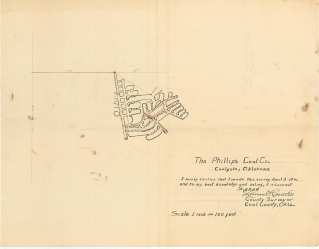 The Phillips Coal Co.
Coalgate, Oklahoma
I hereby certify that I made this survey April 3
and to my best knowledge and belief, it is correct
Signed
County Surveyor
Coal County, Okla.
Scale 1 inch = 100 feet